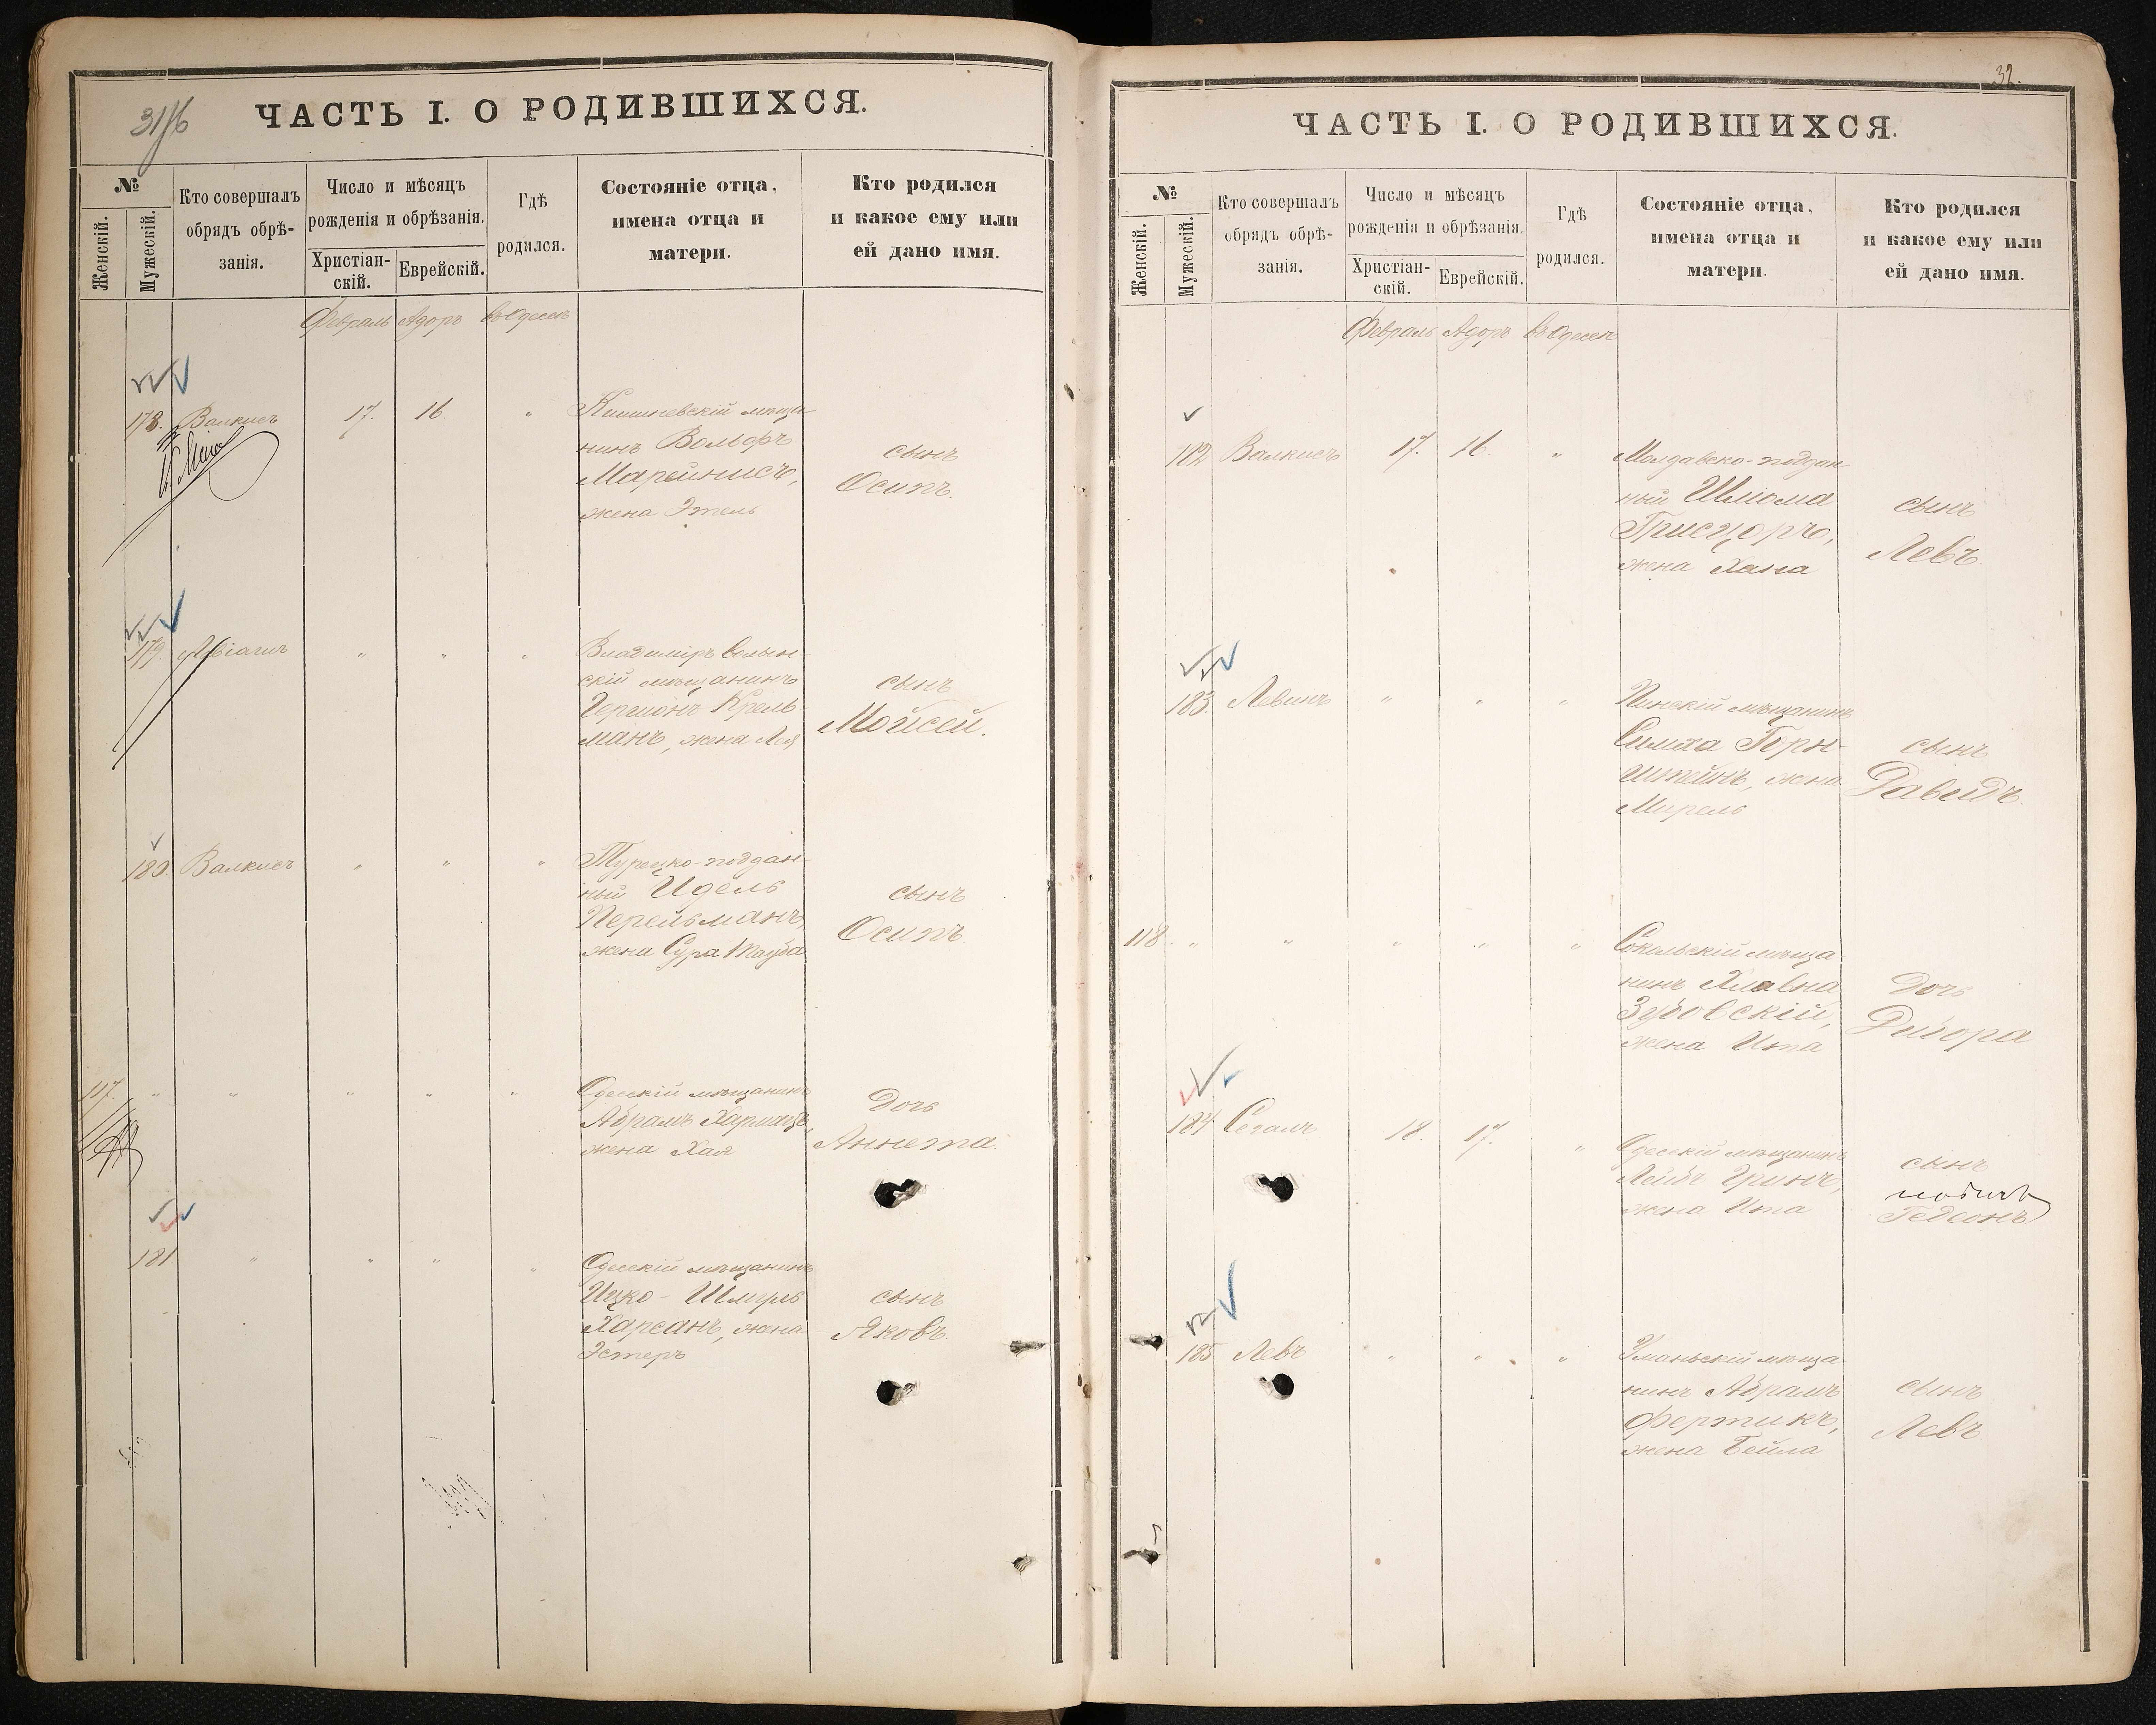 31/б
ЧАСТЬ I. О РОДИВШИХСЯ.
№
Женскій.
Мужескій.
Кто совершалъ
обрядъ обрѣ-
занія.
Число и мѣсяцъ
рожденія и обрѣзанія.
Христіан-
скій.
Еврейскій.
Гдѣ
родился.
Состояніе отца,
имена отца и
матери.
Кто родился
и какое ему или
ей дано имя.
Февраль Адоръ въ Одессѣ
178. Валкисъ 17. 16. "
Кишиневскій мѣща-
нинъ Вольфъ
Марейнисъ,
жена Этель
сынъ
Осипъ.
179. " " "
Владиміръ Волын-
скій мѣщанинъ
Гершонъ Крель-
манъ, жена Лея
сынъ
Мойсей.
180. Валкисъ " " "
Турецко-поддан-
ный Идель
Перельманъ,
жена Сура Тауба
сынъ
Осипъ
117. " " " " "
Одесскій мѣщанинъ
Абрамъ Хармацъ,
жена Хая
Дочь
Аннета.
181 " " " "
Одесскій мѣщанинъ
Ицко-Шмуль
Харсанъ, жена
Эстеръ
сынъ
Яковъ
32.
ЧАСТЬ I. О РОДИВШИХСЯ.
№
Женскій.
Мужескій.
Кто совершалъ
обрядъ обрѣ-
занія.
Число и мѣсяцъ
рожденія и обрѣзанія.
Христіан-
скій.
Еврейскій.
Гдѣ
родился.
Состояніе отца,
имена отца и
матери.
Кто родился
и какое ему или
ей дано имя.
Февраль Адоръ въ Одессѣ
182 Валкисъ 17. 16. "
Молдавско-поддан-
ный Шліома
Грисцоръ,
жена Хана
сынъ
Левъ
183. Левинъ " " "
Пинскій мѣщанинъ
Симха Горн-
штейнъ, жена
Мирель
сынъ
Давидъ.
118 " " " " "
Сокольскій мѣща
нинъ Хлавна
Зубовскій,
жена Ита
Дочь
Двора
184 Сегалъ 18. 17. "
Одесскій мѣщанинъ
Лейбъ Гринъ,
жена Ита
сынъ
Гедеонъ
185 Левъ " " "
Уманьскій мѣща
нинъ Абрамъ
Фертикъ,
жена Бейла
сынъ
Левъ